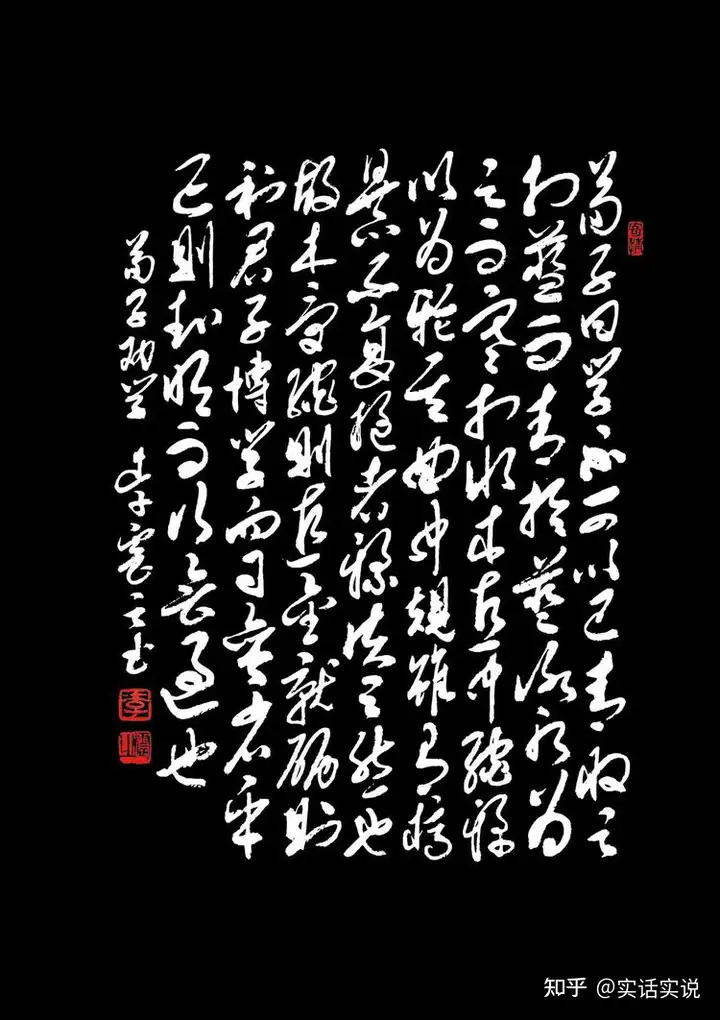 荀子曰学不可以已青取之
於蓝而青於蓝冰水为
之而寒於水木直中绳𫐓
以为轮其曲中规虽有槁
暴不复挺者𫐓使之然也
故木受绳则直金就砺则
利君子博学而日参省乎
己则知明而行无过也
荀子劝学 李 书
知乎 @实话实说